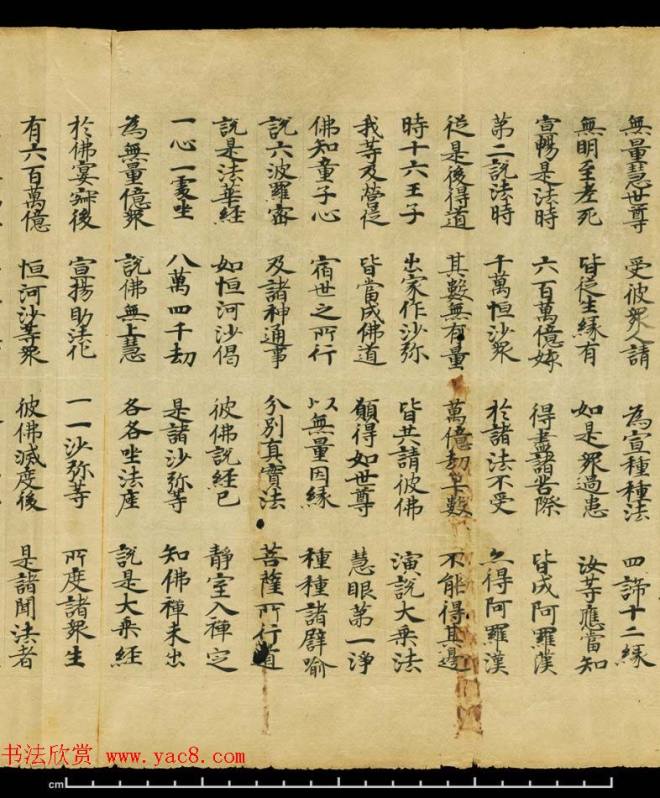 無量慧世尊 受彼衆人請 為宣種種法 四諦十二緣
無明至老死 皆從生緣有 如是衆過患 汝等應當知
宣暢是法時 六百萬億姟 得盡諸苦際 皆成阿羅漢
第二說法時 千萬恒沙衆 於諸法不受 亦得阿羅漢
從是後得道 其數無有量 萬億劫筭數 不能得其邊
時十六王子 出家作沙弥 皆共請彼佛 演說大乘法
我等及營從 皆當成佛道 願得如世尊 慧眼第一淨
佛知童子心 宿世之所行 以無量因緣 種種諸譬喻
說六波羅蜜 及諸神通事 分別真實法 菩薩所行道
說是法華經 如恒河沙偈 彼佛說經已 靜室入禪定
一心一處坐 八萬四千劫 是諸沙弥等 知佛禪未出
為無量億衆 說佛無上慧 各各坐法座 說是大乘經
於佛宴寂後 宣揚助法化 一一沙弥等 所度諸衆生
有六百萬億 恒河沙等衆 彼佛滅度後 是諸聞法者
书法欣赏 www.yac8.com
cm